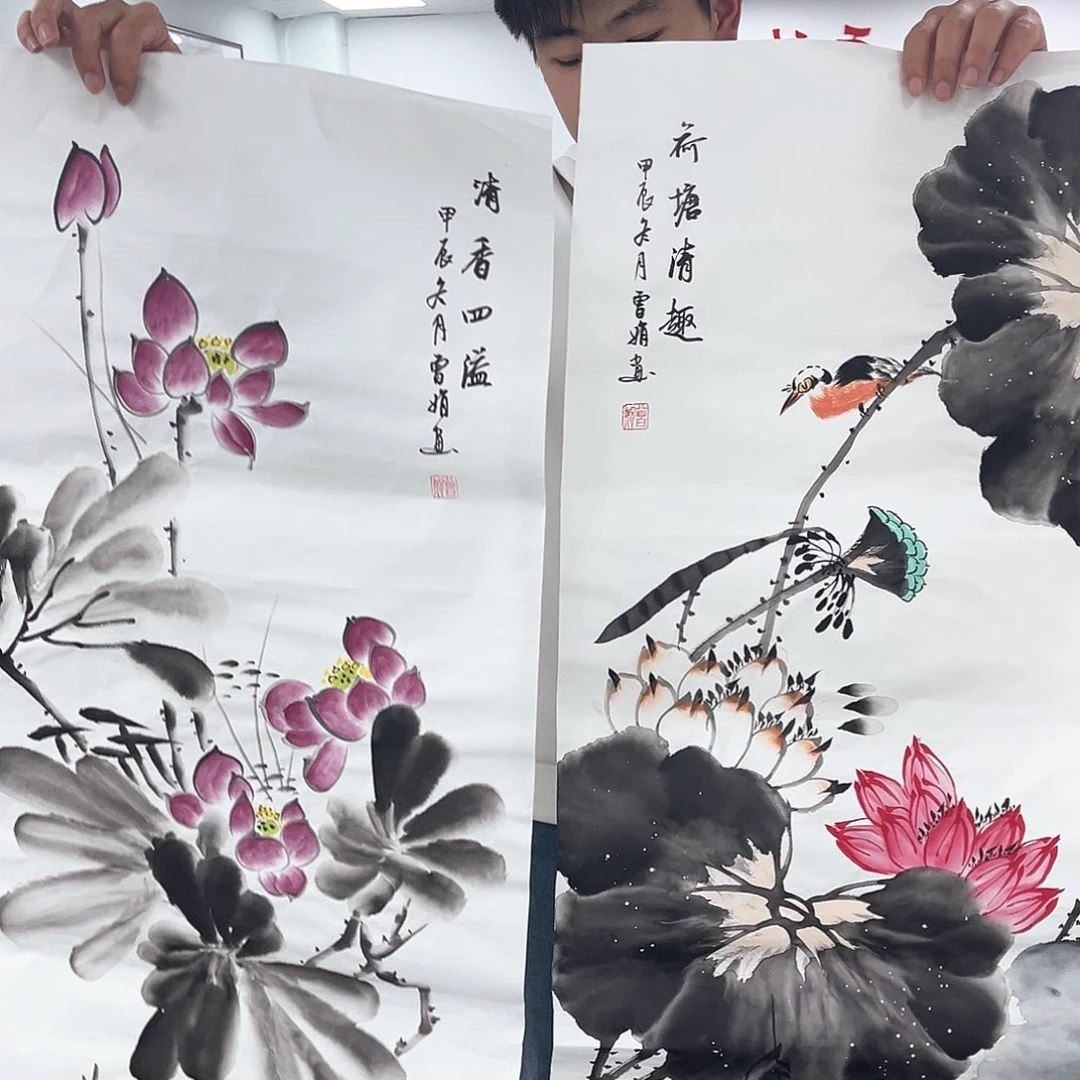 清香四溢
甲辰冬月曾娟画
荷塘清趣
甲辰冬月曾娟画